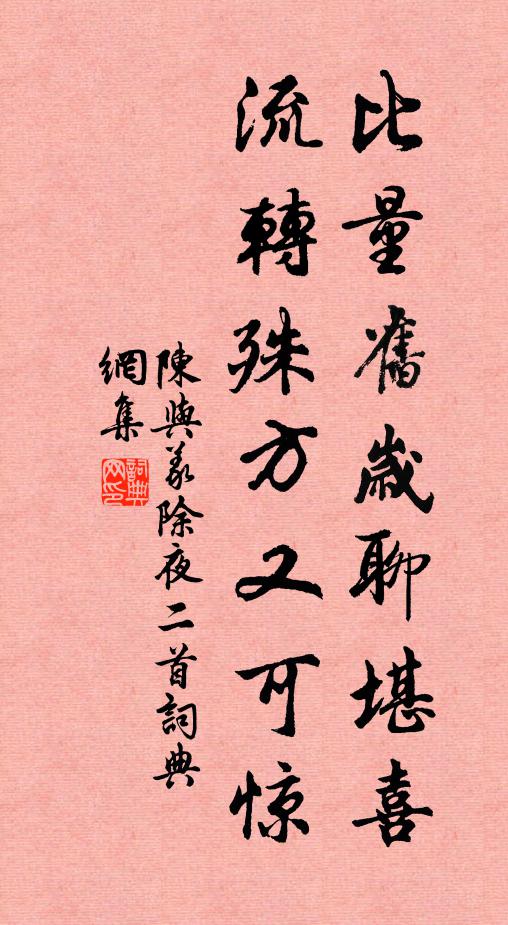 比量舊歲聊堪喜
流轉殊方又可惊
陳與義除夜二首詞典
網集
詞典
网印